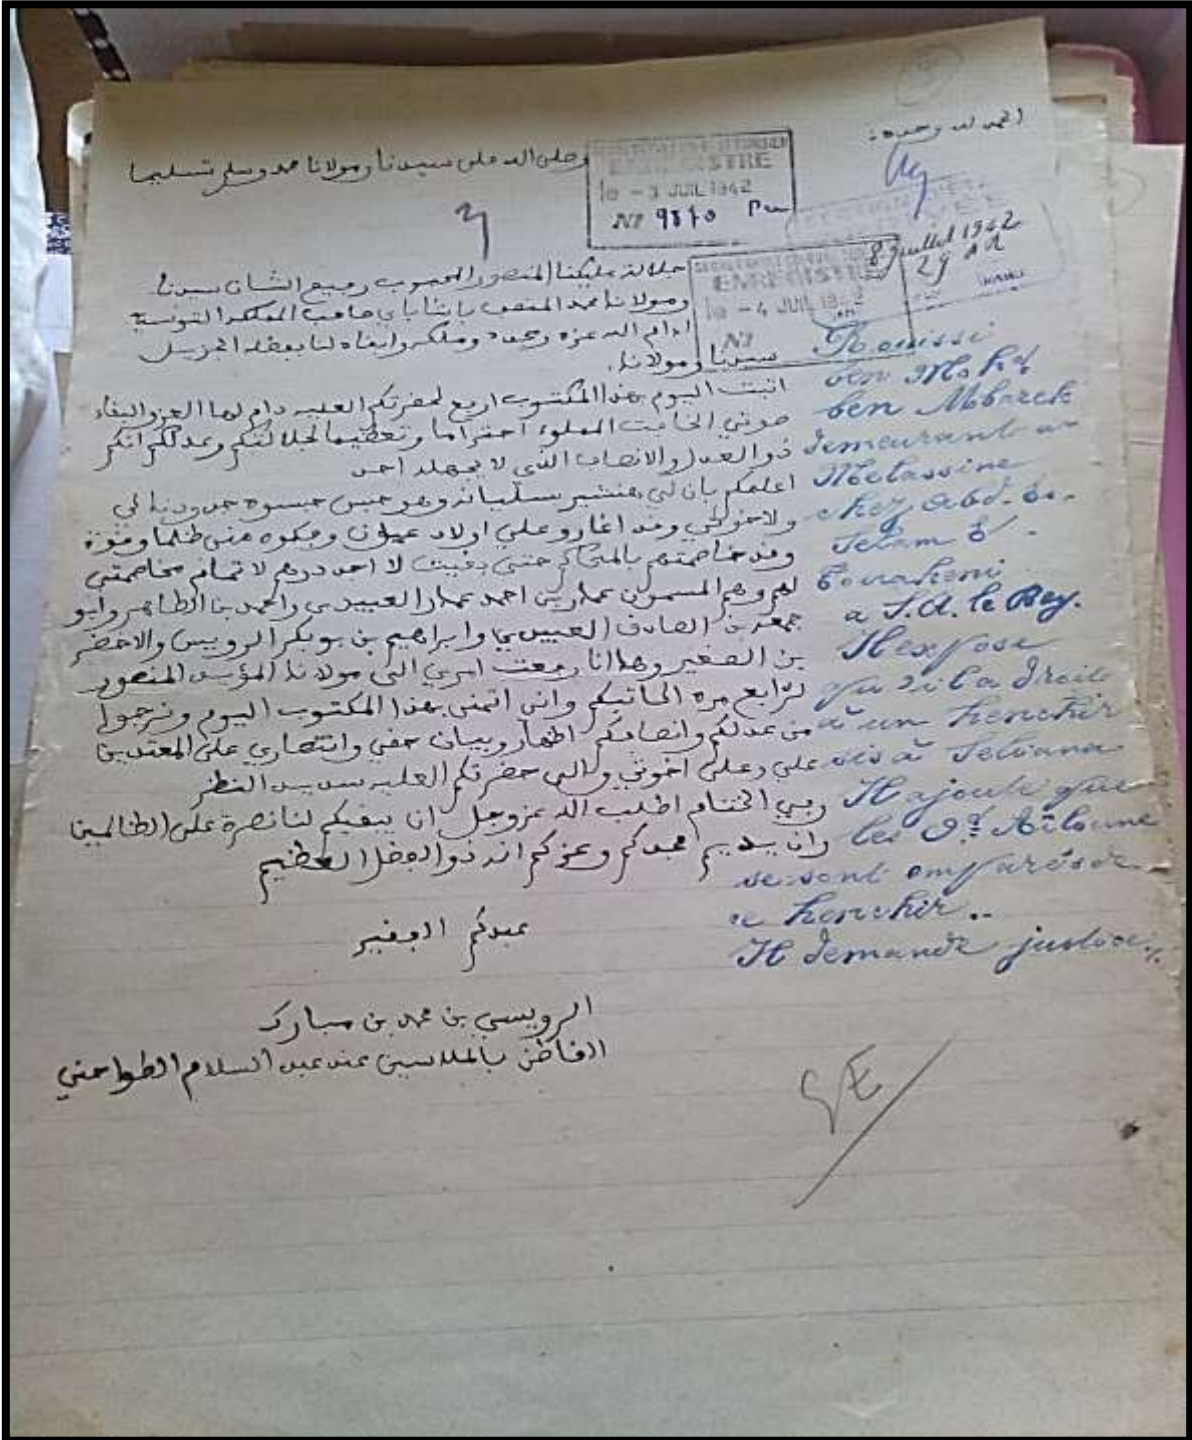 الحمد لله وحده:
وصلى الله على سيدنا ومولانا محمد وسلم تسليما
ENREGISTRE
le - 3 JUIL 1942
N° 9870
8 juillet 1942
ENREGISTRE
le - 4 JUIL 1942
N°
جلالة مليكنا المنصور المحبوب رفيع الشان سيدنا
ومولانا محمد المنصف باشا باي صاحب المملكة التونسية
ادام الله عزه ومجده وملكه وابقاه لنا بفضله الجزيل
سيدنا ومولانا.
اتيت اليوم بهذا المكتوب ارفع لحضرتكم العليه دام لها العز والبقاء
صوتي الخافت المملوء احتراما وتعظيما لجلالتكم وعدلكم انكم
ذو العدل والانصاف الذي لا يجهله احد
اعلمكم بان لي هنشير بسليانة وهو حبس حبسوه جدودنا لي
ولاخوتي وقد اغاروا علي اولاد عيلون وفكوه مني ظلما وقوة
وقد خاصمتهم بالمحاكم حتى بقيت لا احد درهم لاتمام مخاصمتي
لهم وهم المسمون عمار بن احمد عمار العبيدي واحمد بن الطاهر وابو
جمعة بن الصادق العبيدي وابراهيم بن بوبكر الرويسي والاخضر
بن الصغير وها انا رفعت امري الى مولانا المؤيد المنصور
لرابع مره
وانى اتمنى بهذا المكتوب اليوم ونرجوا
من عدلكم وانصافكم اظهار وبيان حقي وانتصاري على المعتدين
علي وعلى اخوتي والى حضرتكم العليه سديد النظر
وفي الختام اطلب الله عز وجل ان يبقيكم لنا نصرة على الظالمين
وان يديم مجدكم وعزكم انه ذو الفضل العظيم
عبدكم الفقير
الرويسي بن محمد بن مبارك
القاطن بالملاسين عند عبد السلام
Rouissi
ben Mohd
ben Mbarek
demeurant à
Melassine
chez Abd. Es.
Selam
à S.A. le Bey.
Il expose
qu'il a droit
à un henchir
sis à Siliana
Il ajoute que
les Od Aïloune
se sont emparés de
ce henchir..
Il demande justice./.